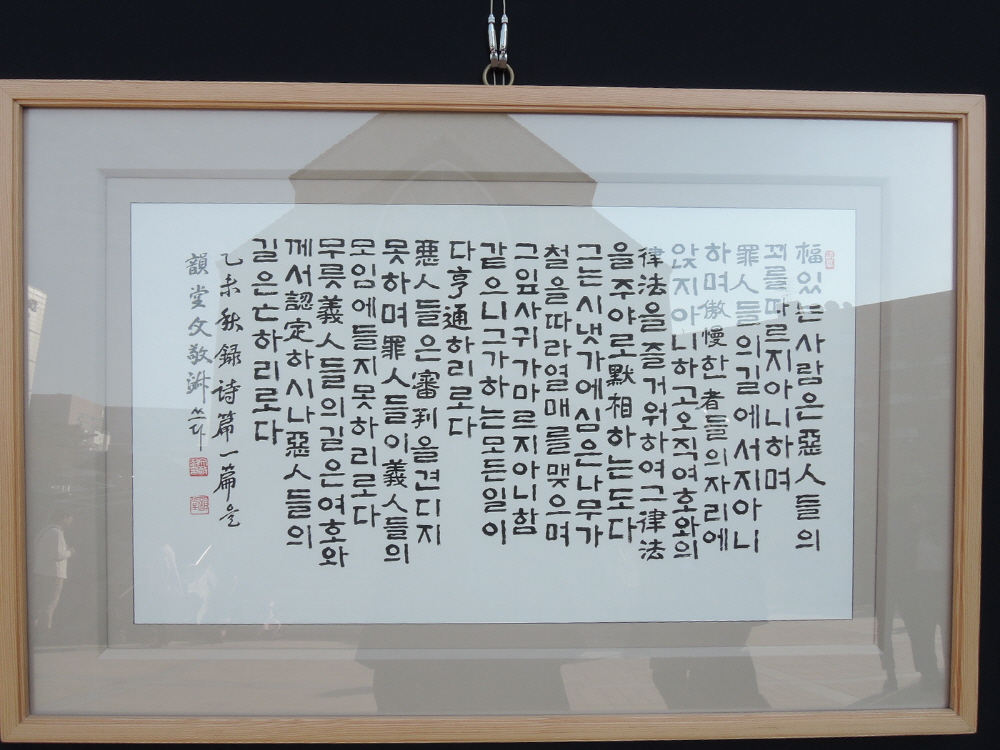 福있는사람은惡人들의
꾀를따르지아니하며
罪人들의길에서지아니
하며傲慢한者들의자리에
앉지아니하고오직여호와의
律法을즐거워하여그律法
을주야로默相하는도다
그는시냇가에심은나무가
철을따라열매를맺으며
그잎사귀가마르지아니함
같으니그가하는모든일이
다亨通하리로다
惡人들은審判을견디지
못하며罪人들이義人들의
모임에들지못하리로다
무릇義人들의길은여호와
께서認定하시나惡人들의
길은亡하리로다
乙未秋録诗篇一篇을
韻堂文敬